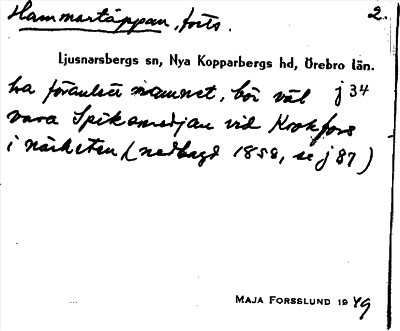 Hammartäppan, forts. 2.
Ljusnarsbergs sn, Nya Kopparbergs hd, Örebro län.
ha föranlett namnet, bör väl j 34
vara Spiksmedjan vid Krokfors
i närheten (nedlagd 1858, se j 87)
MAJA FORSSLUND 1949